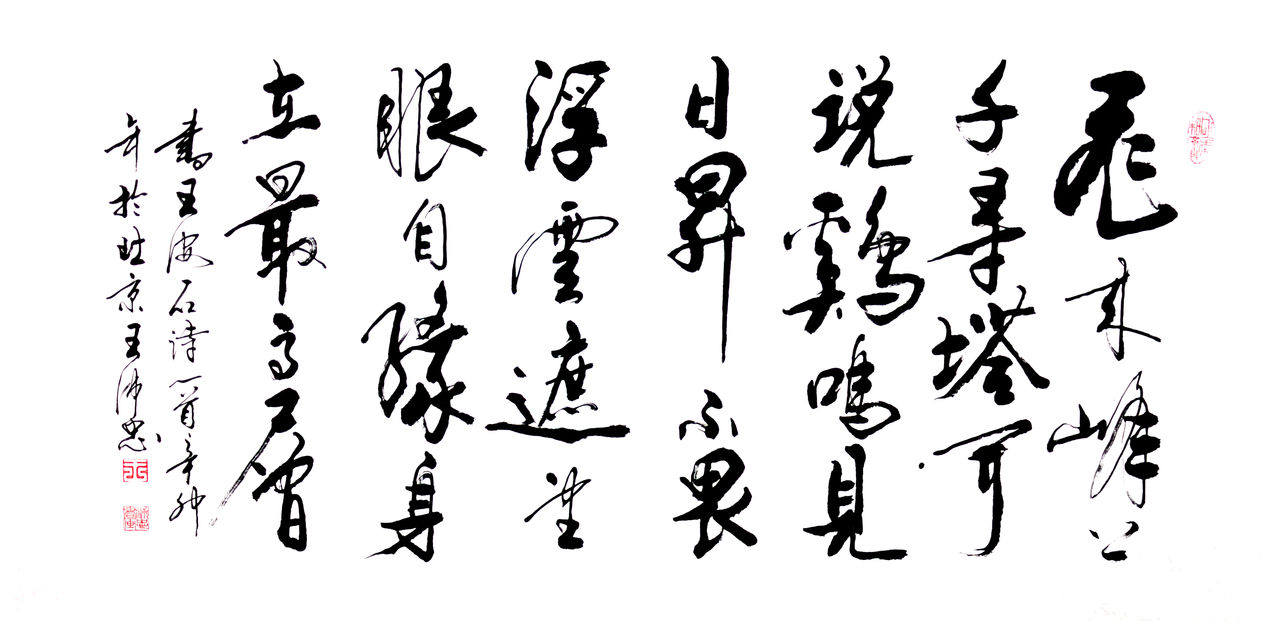 飛来峰上
千尋塔聞
説鷄鳴見
日昇不畏
浮雲遮望
眼自緣身
在最高層
書王安石詩一首辛卯
年於北京王